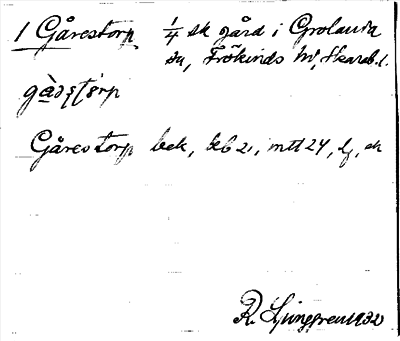 1 Gårestorp 1/4 sk gård i Grolanda
sn, Frökinds hd, Skarab. l.
Gårestorp bek, kb 21, mtl 24, lj, ek
R. Ljunggren 1932